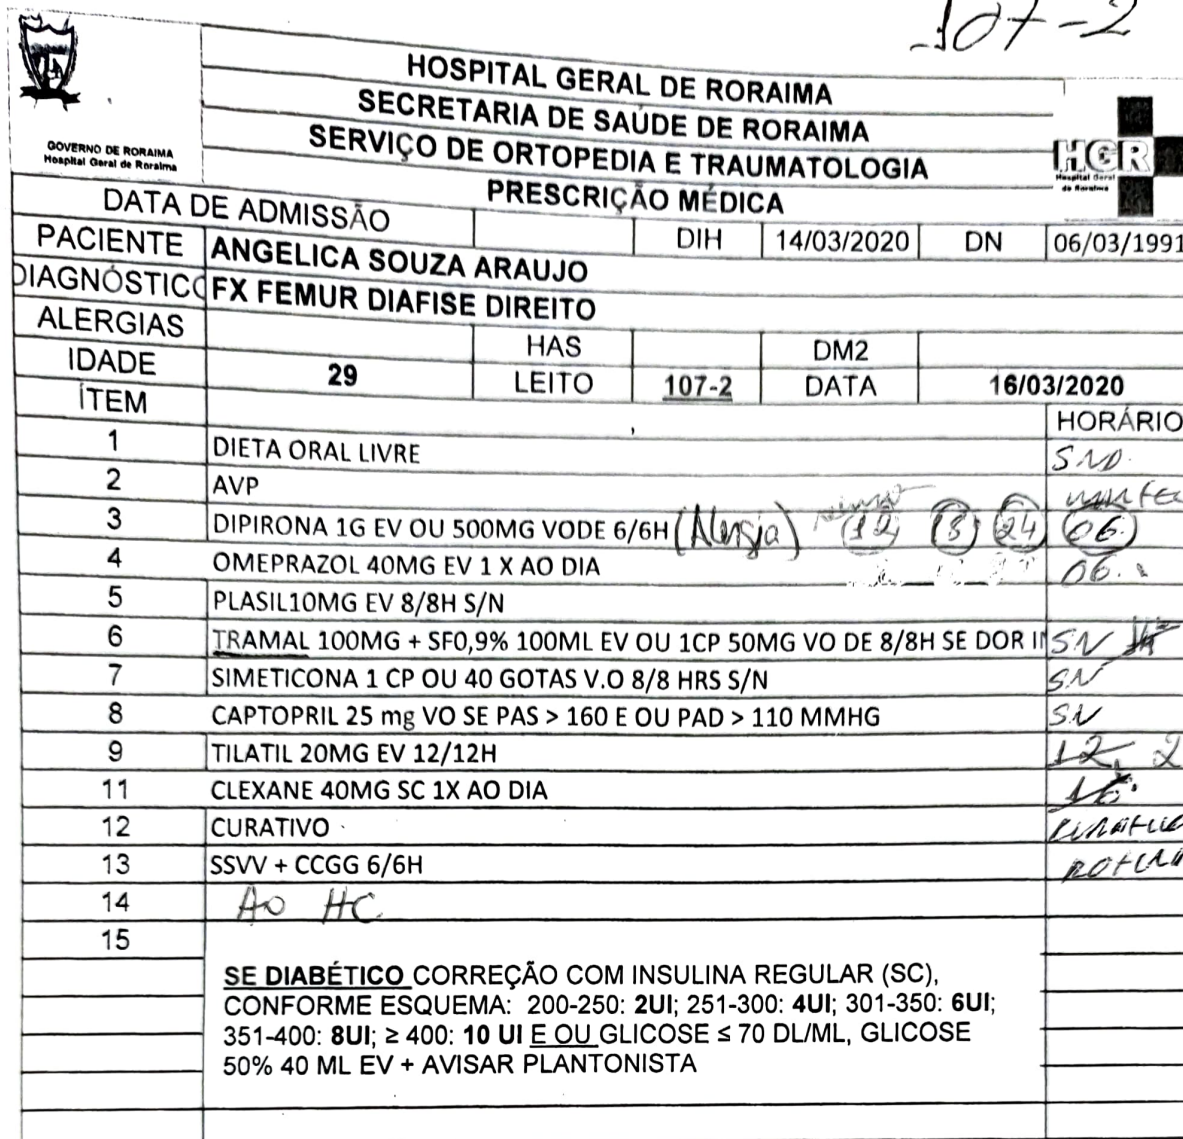 107-2
HOSPITAL GERAL DE RORAIMA
SECRETARIA DE SAÚDE DE RORAIMA
SERVIÇO DE ORTOPEDIA E TRAUMATOLOGIA
PRESCRIÇÃO MÉDICA
GOVERNO DE RORAIMA
Hospital Geral de Roraima
HGR
Hospital Geral
de Roraima
DATA DE ADMISSÃO DIH 14/03/2020 DN 06/03/1991
PACIENTE ANGELICA SOUZA ARAUJO
DIAGNÓSTICO FX FEMUR DIAFISE DIREITO
ALERGIAS HAS DM2
IDADE 29 LEITO 107-2 DATA 16/03/2020
ÍTEM HORÁRIO
1 DIETA ORAL LIVRE SND.
2 AVP
3 DIPIRONA 1G EV OU 500MG VODE 6/6H (Alergia) 12 18 24 06.
4 OMEPRAZOL 40MG EV 1 X AO DIA 06.
5 PLASIL10MG EV 8/8H S/N
6 TRAMAL 100MG + SF0,9% 100ML EV OU 1CP 50MG VO DE 8/8H SE DOR IN SN
7 SIMETICONA 1 CP OU 40 GOTAS V.O 8/8 HRS S/N SN
8 CAPTOPRIL 25 mg VO SE PAS > 160 E OU PAD > 110 MMHG SN
9 TILATIL 20MG EV 12/12H 12, 2
11 CLEXANE 40MG SC 1X AO DIA 16.
12 CURATIVO
13 SSVV + CCGG 6/6H
14 Ao HC
15
SE DIABÉTICO CORREÇÃO COM INSULINA REGULAR (SC),
CONFORME ESQUEMA: 200-250: 2UI; 251-300: 4UI; 301-350: 6UI;
351-400: 8UI; ≥ 400: 10 UI E OU GLICOSE ≤ 70 DL/ML, GLICOSE
50% 40 ML EV + AVISAR PLANTONISTA